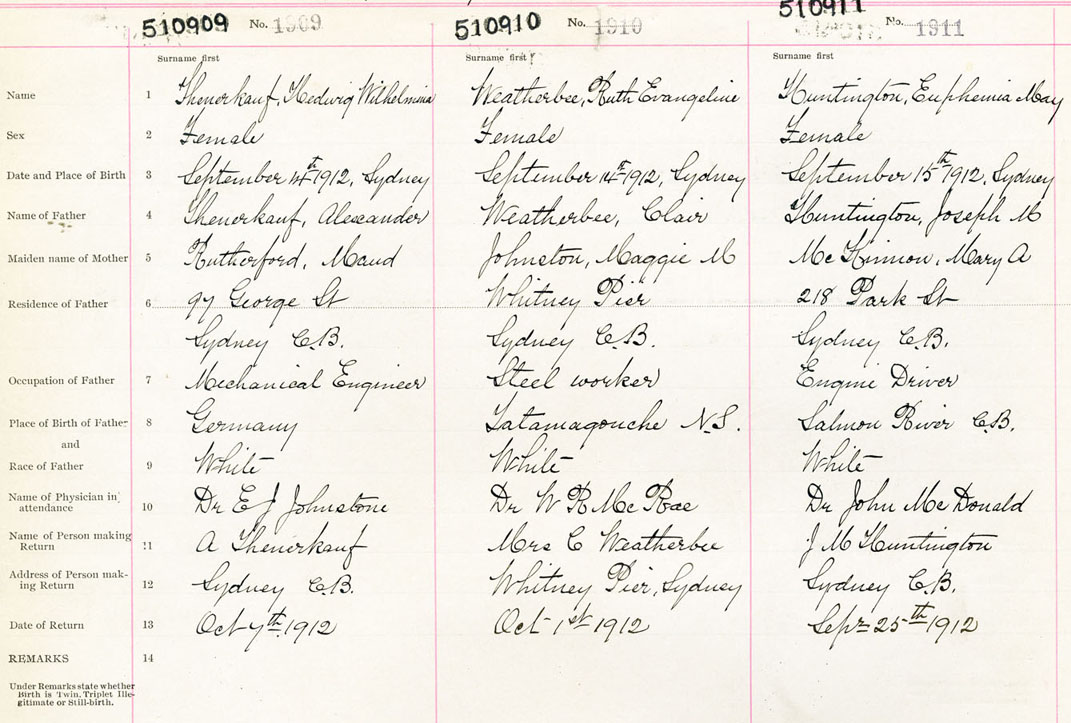 510909 No. 1909 510910 No. 1910 510911 No. 1911
Surname first Surname first Surname first
Name 1 Thenerkauf, Hedwig Wilhelmina Weatherbee, Ruth Evangeline Huntington, Euphemia May
Sex 2 Female Female Female
Date and Place of Birth 3 September 14th 1912, Sydney September 14th 1912, Sydney September 15th 1912, Sydney
Name of Father 4 Thenerkauf, Alexander Weatherbee, Clair Huntington, Joseph M
Maiden name of Mother 5 Rutherford, Maud Johnston, Maggie M McKinnon, Mary A
Residence of Father 6 97 George St Whitney Pier 218 Park St
Sydney C.B. Sydney C.B. Sydney C.B.
Occupation of Father 7 Mechanical Engineer Steel worker Engine Driver
Place of Birth of Father 8 Germany Tatamagouche N.S. Salmon River C.B.
and
Race of Father 9 White White White
Name of Physician in attendance 10 Dr E J Johnstone Dr W R McRae Dr John McDonald
Name of Person making Return 11 A Thenerkauf Mrs C Weatherbee J M Huntington
Address of Person making Return 12 Sydney C.B. Whitney Pier, Sydney Sydney C.B.
Date of Return 13 Oct 7th 1912 Oct 1st 1912 Sepr 25th 1912
REMARKS 14
Under Remarks state whether
Birth is Twin, Triplet Ille-
gitimate or Still-birth.